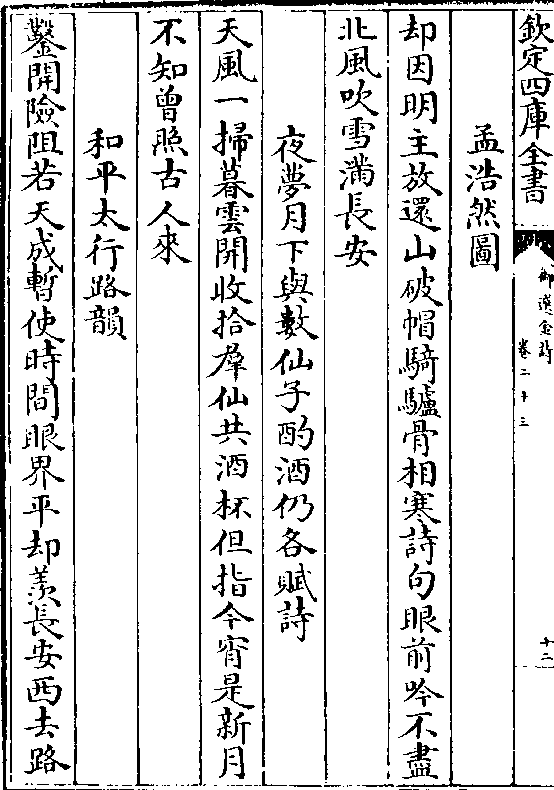 欽定四庫全書
御選金詩
卷二十三
十二
孟浩然圖
却因明主放還山破帽騎驢骨相寒詩句眼前吟不盡
北風吹雪滿長安
夜夢月下與數仙子酌酒仍各賦詩
天風一掃暮雲開收拾羣仙共酒杯但指今宵是新月
不知曾照古人來
和平太行路韻
鑿開險阻若天成暫使時間眼界平却羨長安西去路